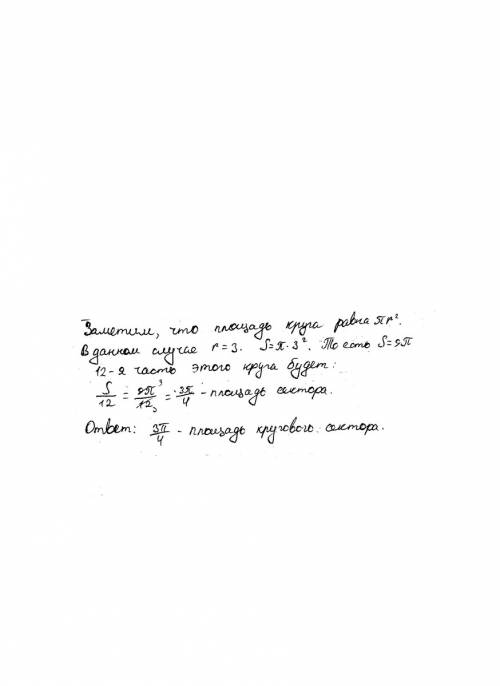 Заметим, что площадь круга равна πr².
В данном случае r = 3. S=π·3². То есть S=9π
12-я часть этого круга будет:
S/12 = 9π³/12 = 3π/4 - площадь сектора.
Ответ: 3π/4 - площадь кругового сектора.